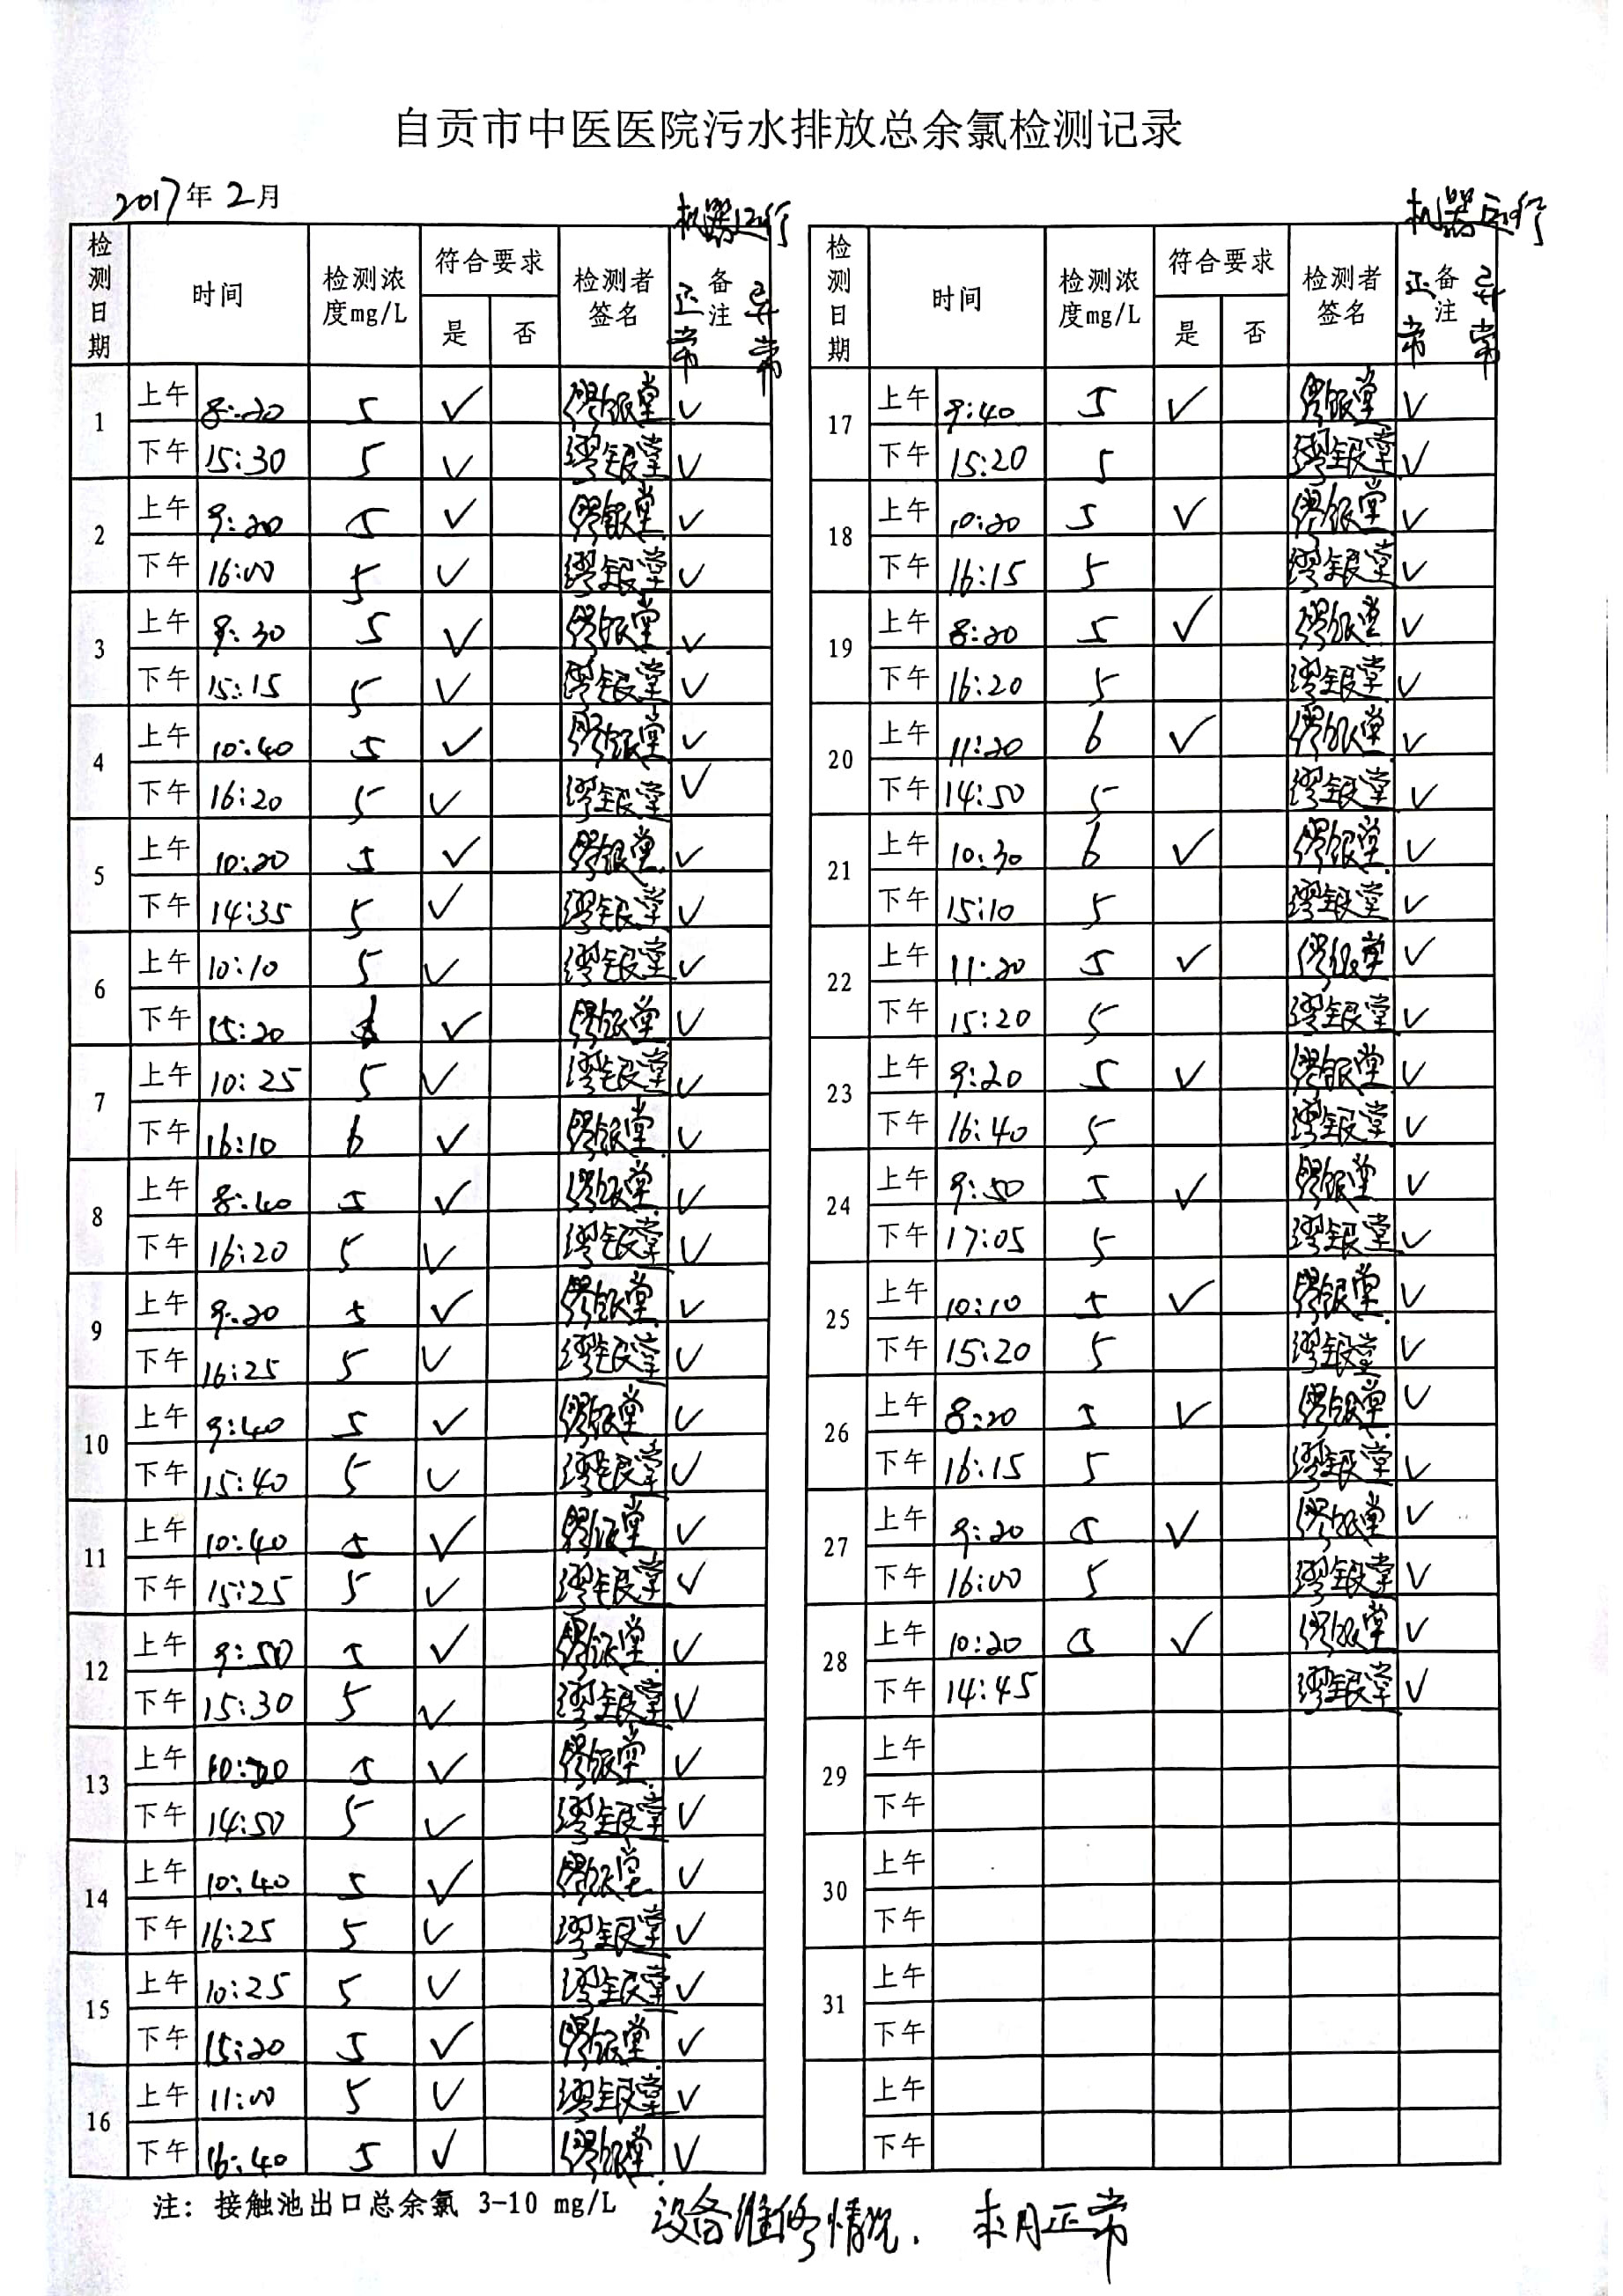 自贡市中医医院污水排放总余氯检测记录
2017年2月
检测日期 时间 检测浓度mg/L 符合要求 是 否 检测者签名 备注 机器运行 正常 异常
1 上午 8:20 5 ✓ 缪银堂 ✓
下午 15:30 5 ✓ 缪银堂 ✓
2 上午 9:20 5 ✓ 缪银堂 ✓
下午 16:00 5 ✓ 缪银堂 ✓
3 上午 9:30 5 ✓ 缪银堂 ✓
下午 15:15 5 ✓ 缪银堂 ✓
4 上午 10:40 5 ✓ 缪银堂 ✓
下午 16:20 5 ✓ 缪银堂 ✓
5 上午 10:20 5 ✓ 缪银堂 ✓
下午 14:35 5 ✓ 缪银堂 ✓
6 上午 10:10 5 ✓ 缪银堂 ✓
下午 15:20 ✓ 缪银堂 ✓
7 上午 10:25 5 ✓ 缪银堂 ✓
下午 16:10 6 ✓ 缪银堂 ✓
8 上午 8:40 5 ✓ 缪银堂 ✓
下午 16:20 5 ✓ 缪银堂 ✓
9 上午 9:20 5 ✓ 缪银堂 ✓
下午 16:25 5 ✓ 缪银堂 ✓
10 上午 9:40 5 ✓ 缪银堂 ✓
下午 15:40 5 ✓ 缪银堂 ✓
11 上午 10:40 5 ✓ 缪银堂 ✓
下午 15:25 5 ✓ 缪银堂 ✓
12 上午 9:50 5 ✓ 缪银堂 ✓
下午 15:30 5 ✓ 缪银堂 ✓
13 上午 10:20 5 ✓ 缪银堂 ✓
下午 14:50 5 ✓ 缪银堂 ✓
14 上午 10:40 5 ✓ 缪银堂 ✓
下午 16:25 5 ✓ 缪银堂 ✓
15 上午 10:25 5 ✓ 缪银堂 ✓
下午 15:20 5 ✓ 缪银堂 ✓
16 上午 11:00 5 ✓ 缪银堂 ✓
下午 16:40 5 ✓ 缪银堂 ✓
检测日期 时间 检测浓度mg/L 符合要求 是 否 检测者签名 备注 机器运行 正常 异常
17 上午 9:40 5 ✓ 缪银堂 ✓
下午 15:20 5 缪银堂 ✓
18 上午 10:20 5 ✓ 缪银堂 ✓
下午 16:15 5 缪银堂 ✓
19 上午 8:20 5 ✓ 缪银堂 ✓
下午 16:20 5 缪银堂 ✓
20 上午 11:20 6 ✓ 缪银堂 ✓
下午 14:50 5 缪银堂 ✓
21 上午 10:30 6 ✓ 缪银堂 ✓
下午 15:10 5 缪银堂 ✓
22 上午 11:20 5 ✓ 缪银堂 ✓
下午 15:20 5 缪银堂 ✓
23 上午 9:20 5 ✓ 缪银堂 ✓
下午 16:40 5 缪银堂 ✓
24 上午 9:50 5 ✓ 缪银堂 ✓
下午 17:05 5 缪银堂 ✓
25 上午 10:10 5 ✓ 缪银堂 ✓
下午 15:20 5 缪银堂 ✓
26 上午 8:20 5 ✓ 缪银堂 ✓
下午 16:15 5 缪银堂 ✓
27 上午 9:20 5 ✓ 缪银堂 ✓
下午 16:00 5 缪银堂 ✓
28 上午 10:20 5 ✓ 缪银堂 ✓
下午 14:45 缪银堂 ✓
29 上午
下午
30 上午
下午
31 上午
下午
上午
下午
注：接触池出口总余氯 3-10 mg/L 设备维修情况. 本月正常